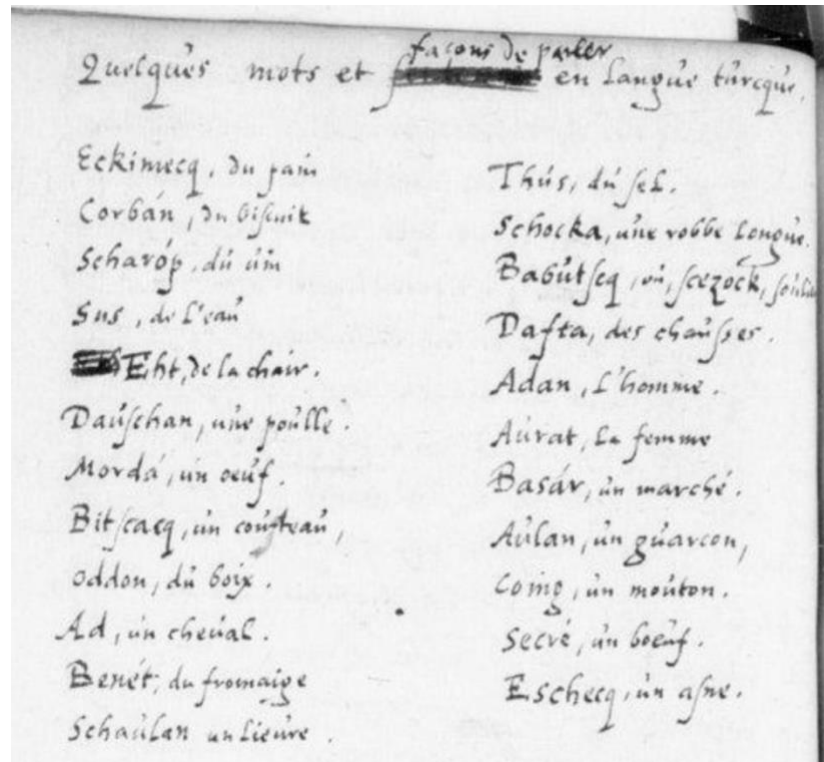 façons de parler
Quelques mots et en langue turcque.
Eckimecq, du pain
Corbán, du biscuit
Scharóp, du vin
Sus, de l'eau
Eht, de la chair.
Dauschan, une poulle.
Mordá, un oeuf.
Bitscacq, un cousteau,
Oddon, du boix.
Ad, un cheval.
Benét, du fromaige
Schaulan un lieure.
Thús, du sel.
Schocka, une robbe longue.
Babutscq, ou, scezock,
Dafta, des chausses.
Adan, l'homme.
Aurat, la femme
Basár, un marché.
Aulan, un guarcon,
Coing, un mouton.
Secré, un boeuf.
Eschecq, un asne.